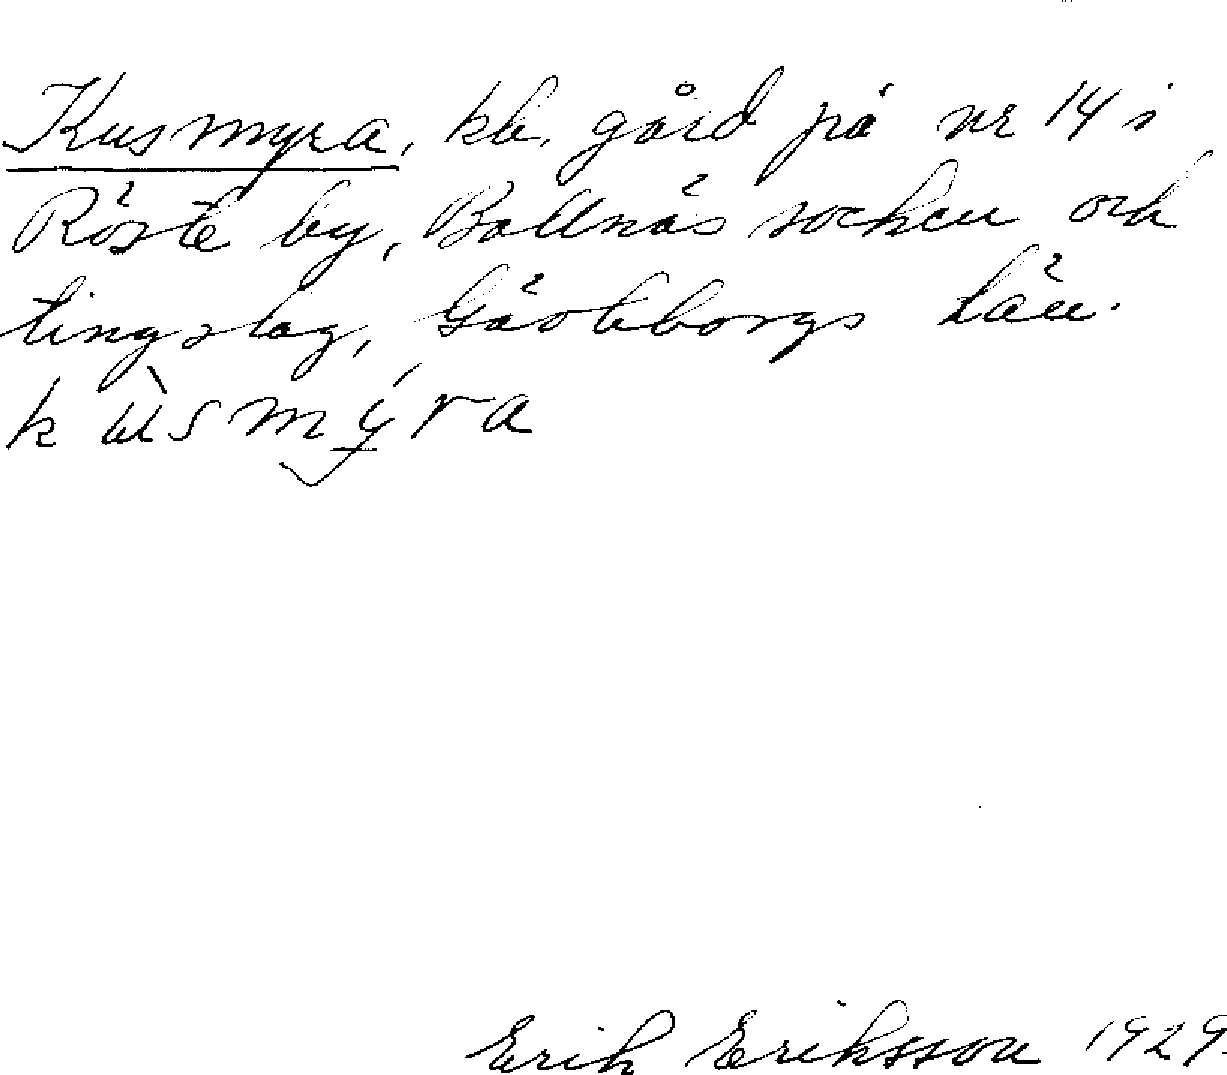 Kusmyra, kb. gård på nr 14 i
Röste by, Bollnäs socken och
tingslag, Gävleborgs län.
kùsmýra
Erik Eriksson 1929.